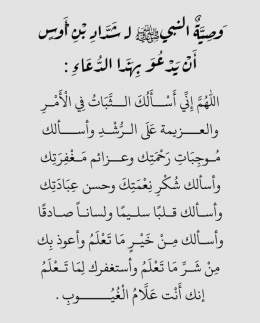 وَصِيَّةُ النبي ﷺ لـ شَدَّادِ بْنِ أَوسٍ
أَنْ يَدْعُوَ بِهَذَا الدُّعَاءِ :
اللَّهُمَّ إِنِّي أَسْـــأَلُكَ الــثَّبَاتُ فِي الْأَمْـــرِ
والعــــزيمة عَلَى الــرُّشْــدِ وأســـــألك
مُــوجِبَاتِ رَحْمَتِك وعــزائم مَـغْفِرَتِك
وأسألك شُكْرِ نِعْمَتِكَ وحسن عِبَادَتِك
وأسألك قـلـبًا سلـيـمًا ولسانـاً صـادقًـا
وأسـألك مِـنْ خَـيْــرِ مَـا تَعْلَمُ وأعوذ بِـك
مِنْ شَــرِّ مَا تَعْلَمُ وأستغفرك لِمَا تَـعْلَمُ
إنك أَنْت عَلَّامُ الْغُيُــــــــوبِ .